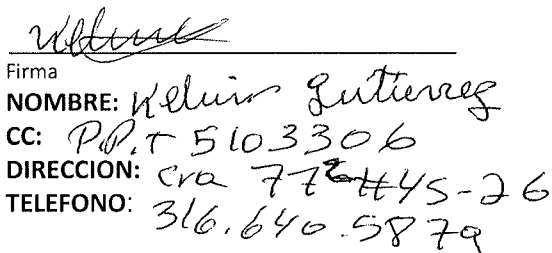 Firma
NOMBRE: Kelvin Gutierrez
CC: P.P.T 5103306
DIRECCION: Cra 77 #45-26
TELEFONO: 316.640.5879